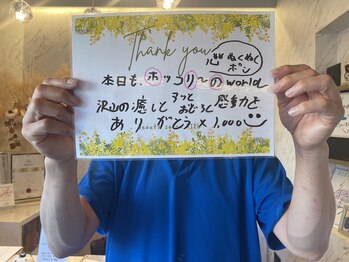 Thank you
心 ぬくぬく
ポン
本日も、ホッコリ〜の world
沢山の癒しと ずっと おどろと 感動を
ありがとう × 1,000